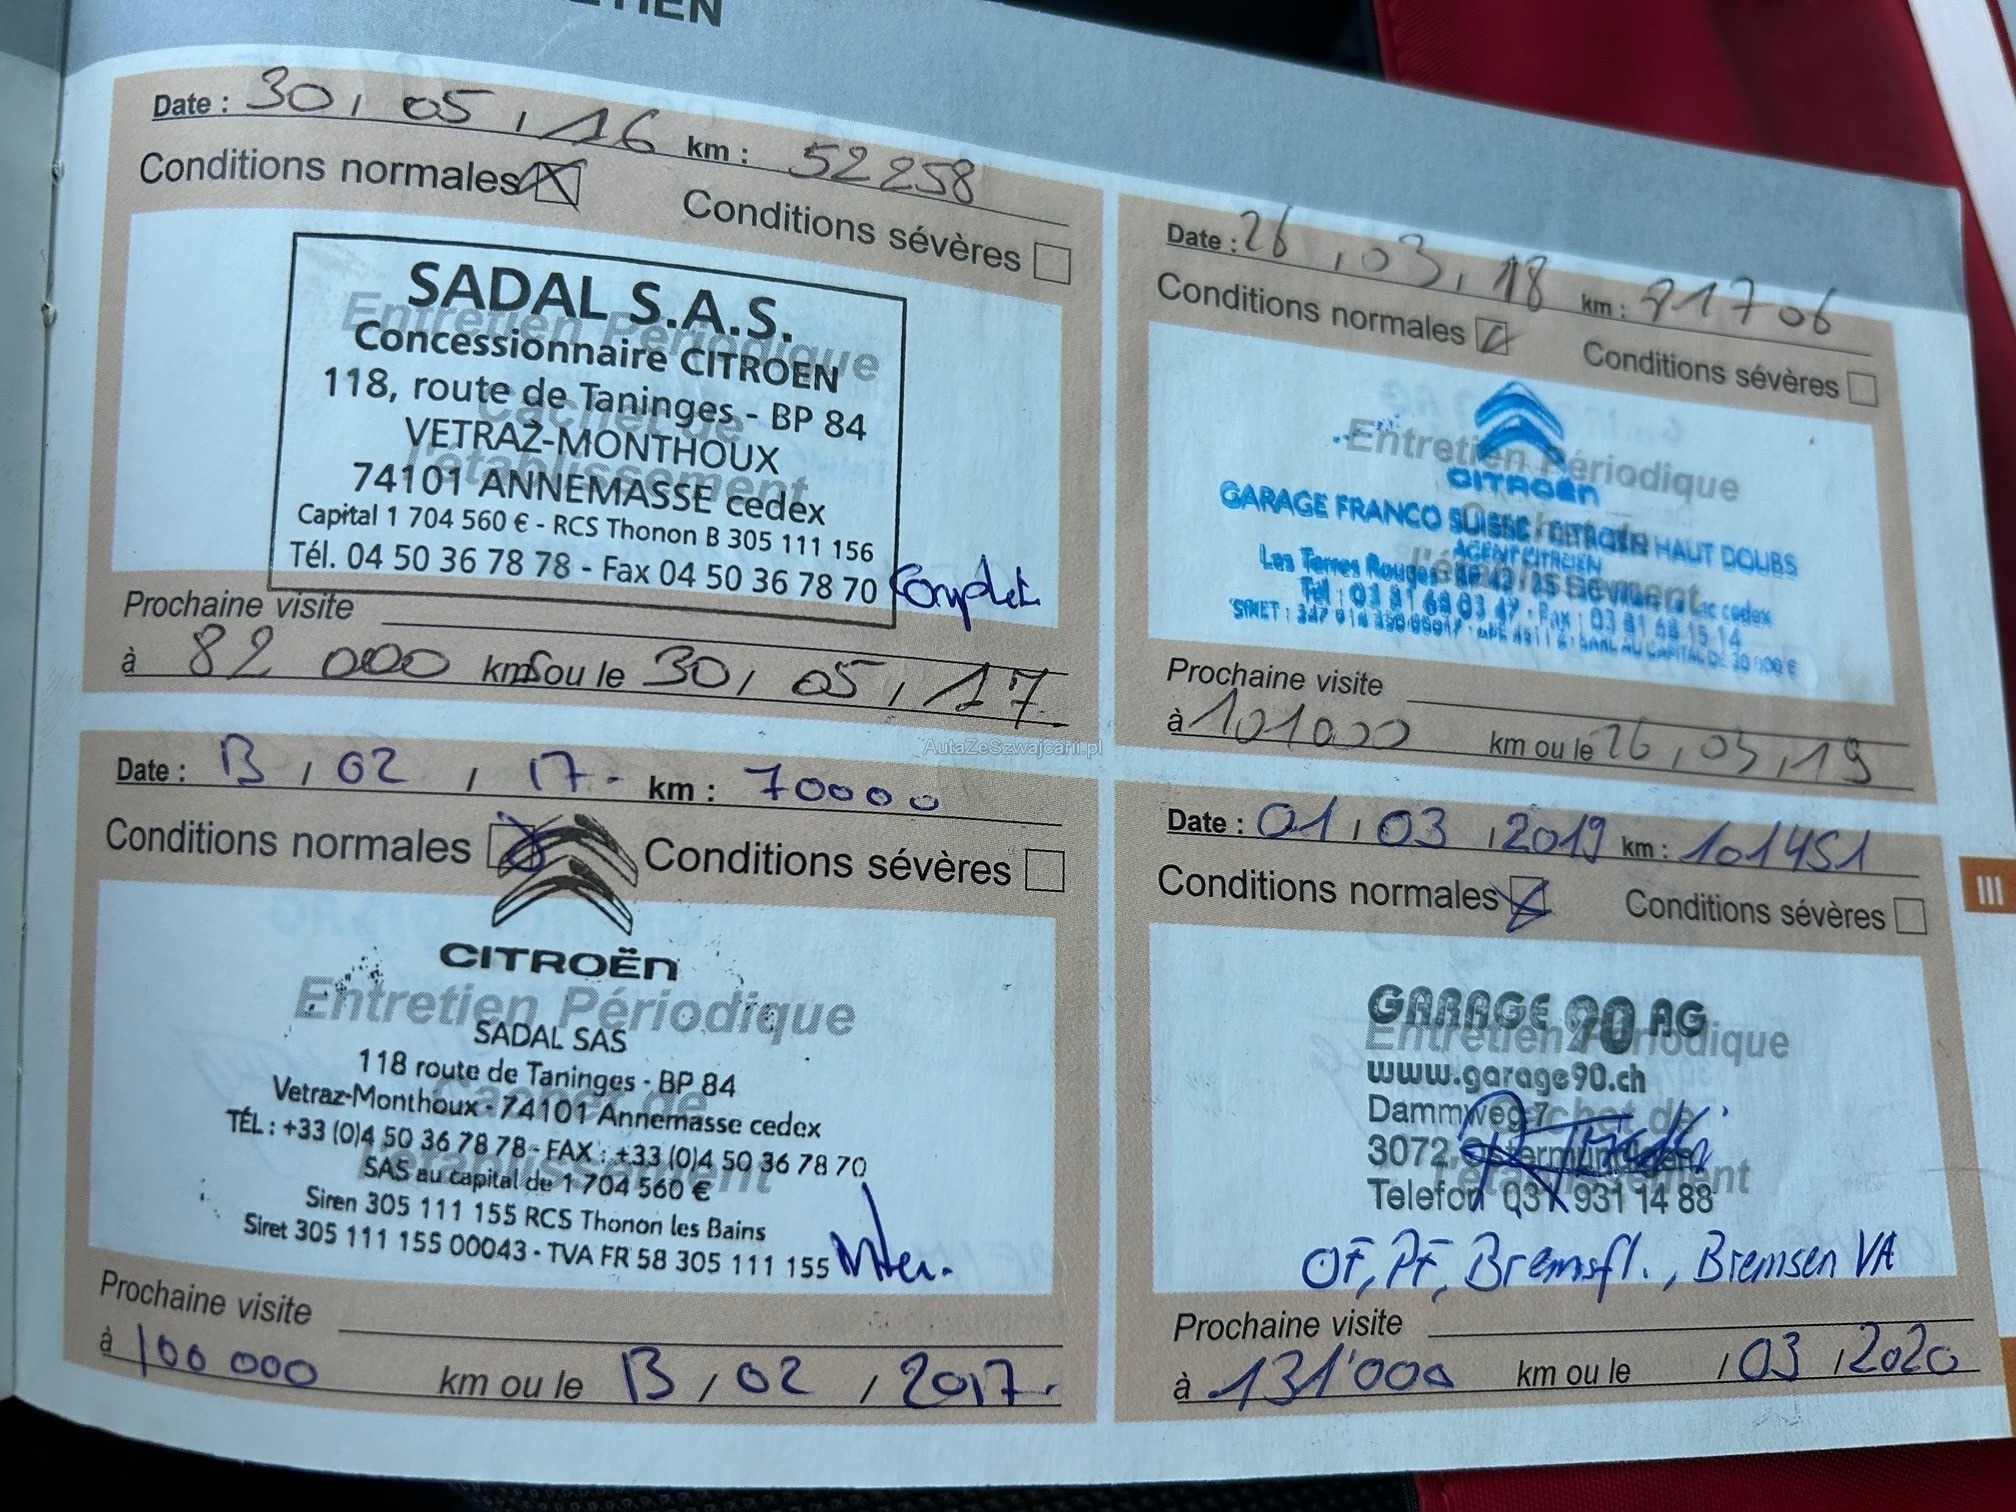 ETIEN
Date : 30, 05, 16 km : 52258
Conditions normales Conditions sévères
SADAL S.A.S.
Concessionnaire CITROEN
118, route de Taninges - BP 84
VETRAZ-MONTHOUX
74101 ANNEMASSE cedex
Capital 1 704 560 € - RCS Thonon B 305 111 156
Tél. 04 50 36 78 78 - Fax 04 50 36 78 70
Complet
Entretien Périodique
Cachet de
l'établissement
Prochaine visite
à 82 000 kms ou le 30, 05, 17
Date : 13, 02, 17. km : 70000
Conditions normales Conditions sévères
CITROËN
Entretien Périodique
SADAL SAS
118 route de Taninges - BP 84
Vetraz-Monthoux - 74101 Annemasse cedex
TÉL : +33 (0)4 50 36 78 78 - FAX : +33 (0)4 50 36 78 70
SAS au capital de 1 704 560 €
Siren 305 111 155 RCS Thonon les Bains
Siret 305 111 155 00043 - TVA FR 58 305 111 155
Cachet de
l'établissement
Prochaine visite
à 100 000 km ou le 13, 02, 2017.
Date : 26, 03, 18 km : 91706
Conditions normales Conditions sévères
Entretien Périodique
CITROËN
GARAGE FRANCO SUISSE / CITROEN HAUT DOUBS
AGENT CITROEN
Les Terres Rouges BP 42 - 25 cedex
Tél : 03 81 68 03 47 - Fax : 03 81 68 15 14
SIRET : SARL AU CAPITAL DE 20 000 €
l'établissement
Prochaine visite
à 101000 km ou le 26, 03, 19
Date : 01, 03, 2019 km : 101451
Conditions normales Conditions sévères
GARAGE 90 AG
Entretien Périodique
www.garage90.ch
Dammweg 7
Cachet de
3072 Ostermundigen
l'établissement
Telefon 031 931 14 88
OF, PF, Bremsfl., Bremsen VA
Prochaine visite
à 131'000 km ou le , 03, 2020
III
AutaZeSzwajcarii.pl